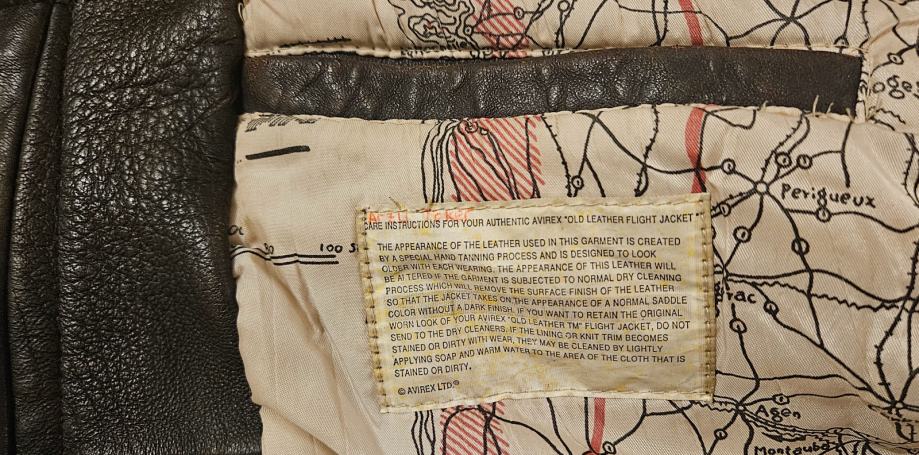 oges
Perigueux
100 S
CARE INSTRUCTIONS FOR YOUR AUTHENTIC AVIREX "OLD LEATHER FLIGHT JACKET"
THE APPEARANCE OF THE LEATHER USED IN THIS GARMENT IS CREATED
BY A SPECIAL HAND TANNING PROCESS AND IS DESIGNED TO LOOK
OLDER WITH EACH WEARING. THE APPEARANCE OF THIS LEATHER WILL
BE ALTERED IF THE GARMENT IS SUBJECTED TO NORMAL DRY CLEANING
PROCESS WHICH WILL REMOVE THE SURFACE FINISH OF THE LEATHER
SO THAT THE JACKET TAKES ON THE APPEARANCE OF A NORMAL SADDLE
COLOR WITHOUT A DARK FINISH. IF YOU WANT TO RETAIN THE ORIGINAL
WORN LOOK OF YOUR AVIREX "OLD LEATHER TM" FLIGHT JACKET, DO NOT
SEND TO THE DRY CLEANERS. IF THE LINING OR KNIT TRIM BECOMES
STAINED OR DIRTY WITH WEAR, THEY MAY BE CLEANED BY LIGHTLY
APPLYING SOAP AND WARM WATER TO THE AREA OF THE CLOTH THAT IS
STAINED OR DIRTY.
© AVIREX LTD.®
rac
Agen
Montauba